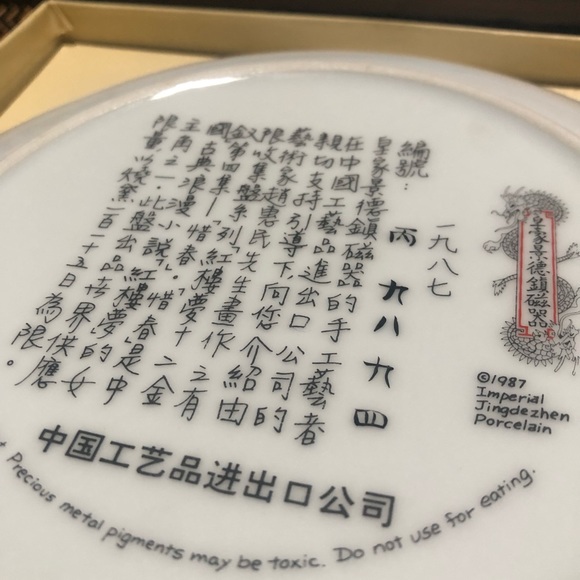 編號：丙九八九四
皇家景德鎮磁器的手工藝者
在中國工藝品進出口公司的
親切支持引導下，向您介紹由
藝術家趙惠民先生畫作之有
限收集盤系列「紅樓夢十二金
釵」第四集—「惜春」。「惜春」是中
國古典浪漫小說「紅樓夢」的女
主角之一。此盤出品世界供應
限量以燒窯一百一十五日為限。
一九八七
皇家景德鎮磁器
©1987
Imperial
Jingdezhen
Porcelain
中国工艺品进出口公司
Precious metal pigments may be toxic. Do not use for eating.